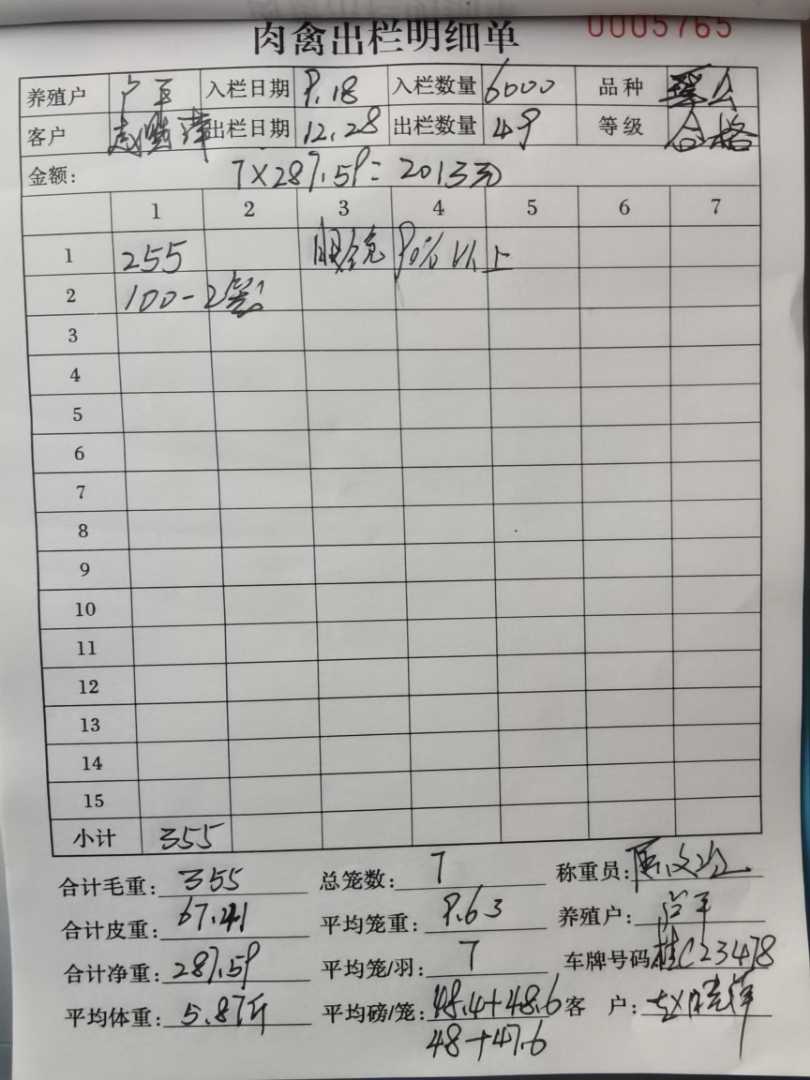 肉禽出栏明细单 0005765
养殖户 卢平 入栏日期 9.18 入栏数量 6000 品种
客户 出栏日期 12.28 出栏数量 49 等级 合格
金额: 7×287.59=2013元
1 2 3 4 5 6 7
1 255 眼镜 90%以上
2 100-2笼
3
4
5
6
7
8
9
10
11
12
13
14
15
小计 355
合计毛重: 355 总笼数: 7 称重员:
合计皮重: 67.41 平均笼重: 9.63 养殖户: 卢平
合计净重: 287.59 平均笼/羽: 7 车牌号码 桂C23478
平均体重: 5.87斤 平均磅/笼: 48.4+48.6 客 户: 赵晓萍
48+47.6